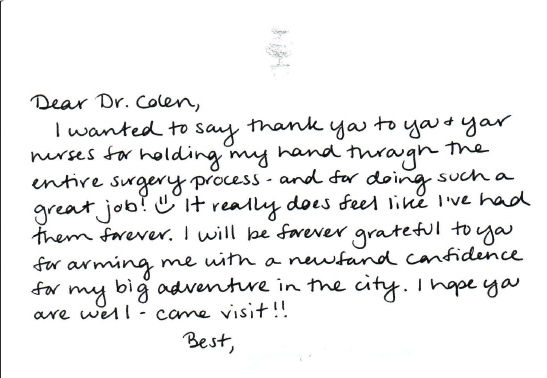 Dear Dr. Colen,
I wanted to say thank you to you & your
nurses for holding my hand through the
entire surgery process - and for doing such a
great job! It really does feel like I've had
them forever. I will be forever grateful to you
for arming me with a newfound confidence
for my big adventure in the city. I hope you
are well - come visit!!
Best,